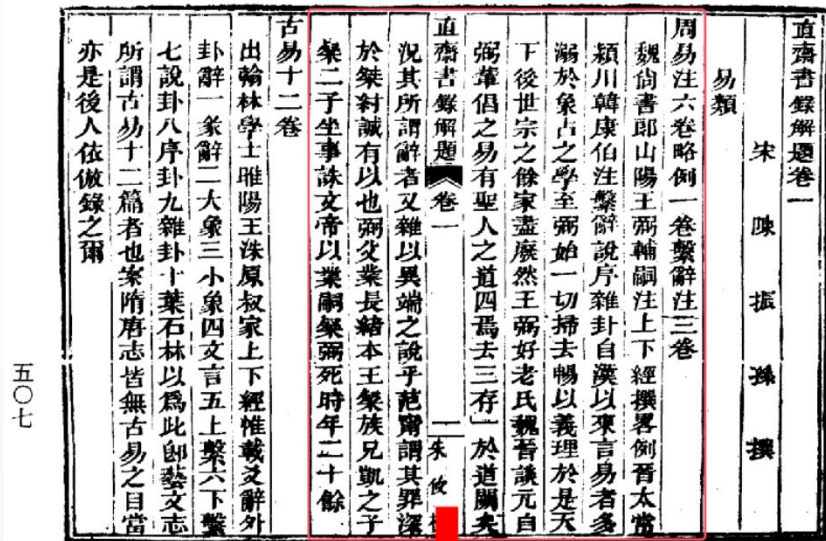 直齋書錄解題卷一
宋 陳 振 孫 撰
易類
周易注六卷略例一卷繫辭注三卷
魏尙書郎山陽王弼輔嗣注上下經撰畧例晉太常
潁川韓康伯注繫辭說序雜卦自漢以來言易者多
溺於象占之學至弼始一切掃去暢以義理於是天
下後世宗之餘家盡廢然王弼好老氏魏晉談元自
弼輩倡之易有聖人之道四焉去三存一於道闕矣
直齋書錄解題 卷一 二 朱攸
況其所謂辭者又雜以異端之說乎范甯謂其罪深
於桀紂誠有以也弼父業長緒本王粲族兄凱之子
粲二子坐事誅文帝以業嗣粲弼死時年二十餘
古易十二卷
出翰林學士睢陽王洙原叔家上下經惟載爻辭外
卦辭一彖辭二大象三小象四文言五上繫六下繫
七說卦八序卦九雜卦十葉石林以爲此卽藝文志
所謂古易十二篇者也案隋唐志皆無古易之目當
亦是後人依倣錄之爾
五〇七